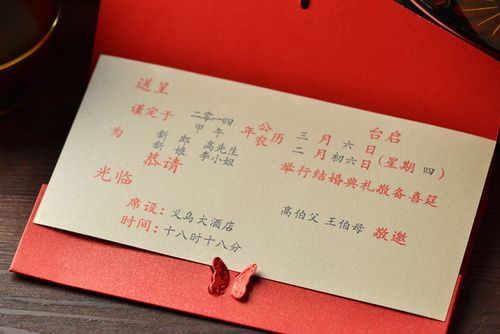 送呈 台启
谨定于 二零一四 年 公历 三 月 六 日
甲午 农历 二 月 初六 日 (星期 四)
为 新郎 高先生 举行结婚典礼敬备喜筵
新娘 李小姐
恭请
光临 高伯父 王伯母 敬邀
席设: 义乌大酒店
时间: 十八时十八分